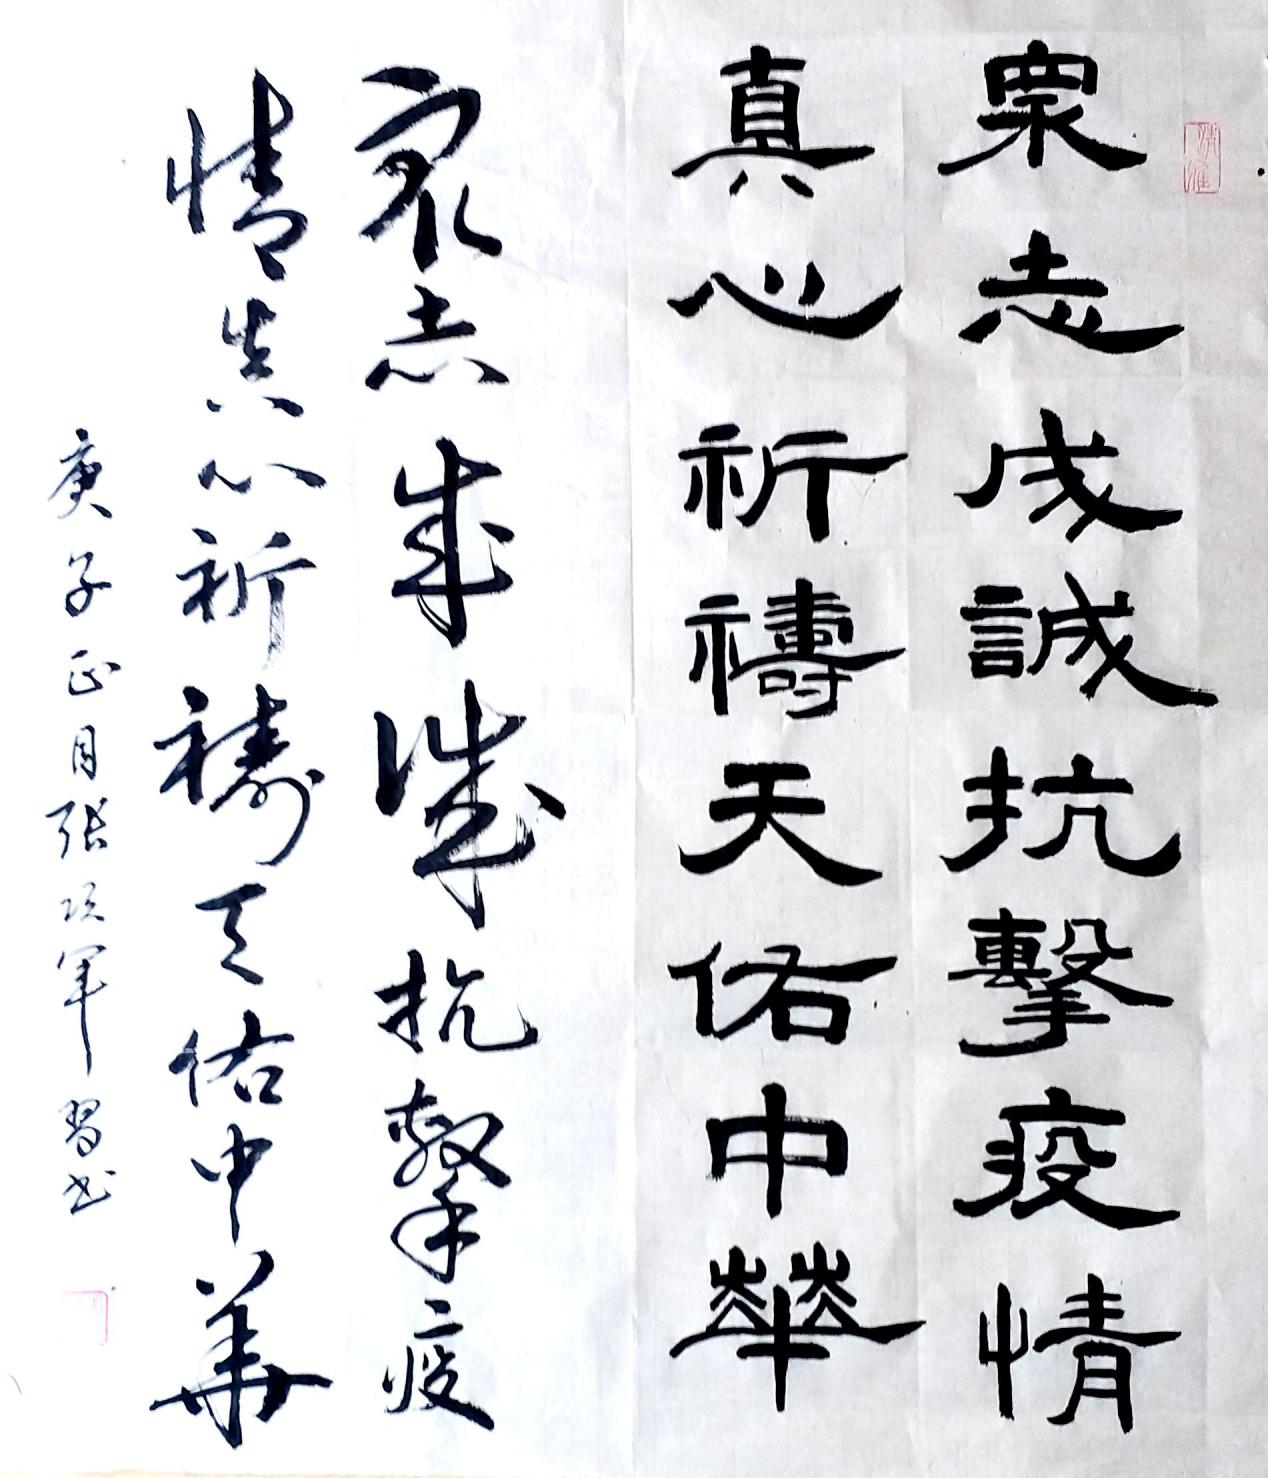 眾志成誠抗擊疫情
真心祈禱天佑中華
眾志成誠抗擊疫
情真心祈禱天佑中華
庚子正月張项軍習书